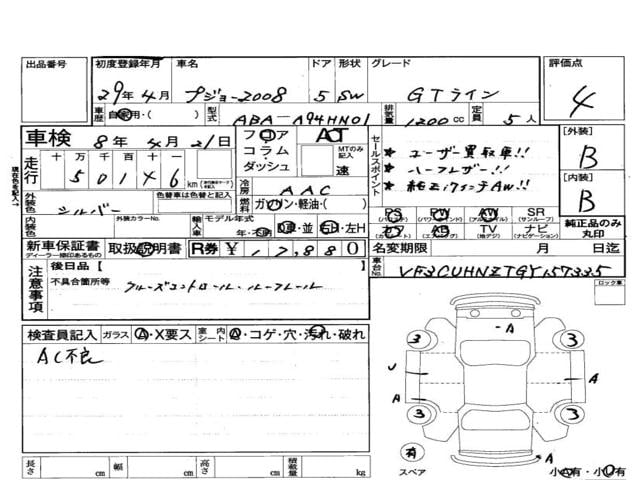 出品番号
初度登録年月 車名 ドア 形状 グレード 評価点
29年 4月 プジョー2008 5 SW GTライン 4
車歴 自家用・( ) 型式 ABA-A94HN01 排気量 1200 cc 定員 5人
車検 8年 4月 21日
フロア・コラム・ダッシュ AT MTのみ記入 速
セールスポイント
★ ユーザー買取車!!
★ ハーフレザー!!
★ 純正17インチAW!!
[外装] B
[内装] B
走行 十万千百十一
50146 km
冷房 AAC
燃料 ガソリン・軽油・( )
外装色 シルバー 色替車は色替と記入
内装色 外装カラーNo. 輸入車 モデル年式 年・不明 D車・並 右H・左H
PS (パワステ) PW (パワーウィンド) AW (アルミホイル) SR (サンルーフ)
カワ AB (エアバッグ) TV (地デジ) ナビ (ナビゲーション)
純正品のみ丸印
新車保証書 ディーラー捺印あるもの 取扱説明書 R券 ¥ 17,880
名変期限 月 日迄
車台No. VF3CUHNZTGY157335
注意事項
後日品 [ ]
不具合箇所等 クルーズコントロール、ルーフレール
ロック車
検査員記入 ガラス A・X要ス 室内シート A・コゲ・穴・汚れ・破れ
AC不良
A
3 3
U
A A
3 3
有
スペア
A
小A有・小U有
長さ cm 幅 cm 高さ cm 積載量 kg